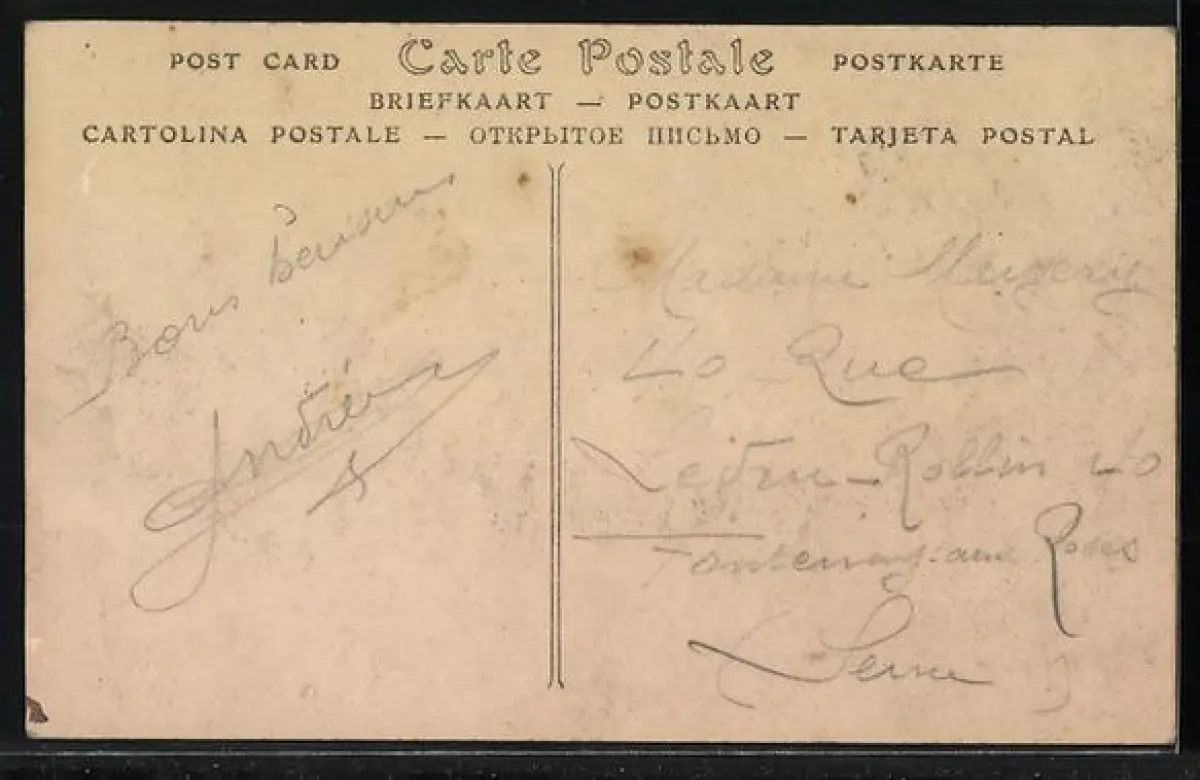 POST CARD Carte Postale POSTKARTE
BRIEFKAART — POSTKAART
CARTOLINA POSTALE — ОТКРЫТОЕ ПИСЬМО — TARJETA POSTAL
Bons baisers
Andrée
Madame
40 Rue
Ledru-Rollin 40
Fontenay-aux Roses
(Seine)